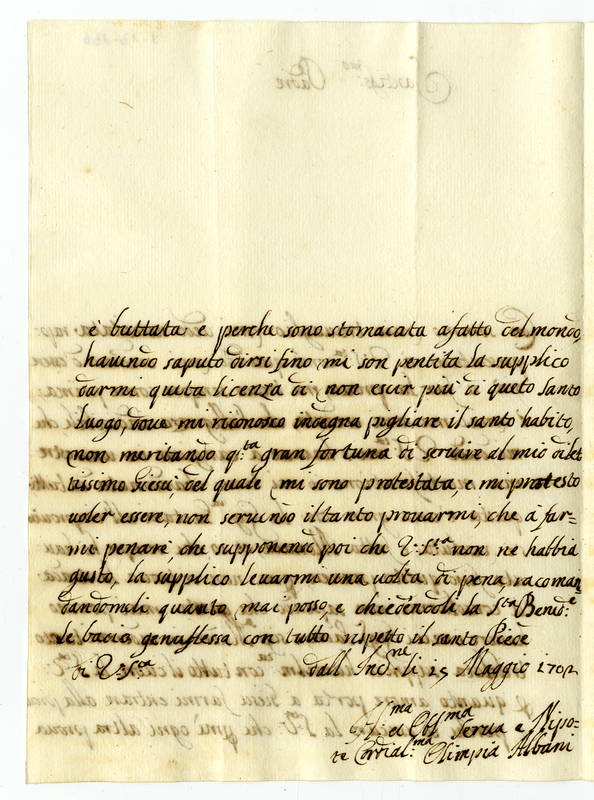 è buttata e perche sono stomacata afatto del mondo,
havendo saputo dirsi fino mi son pentita la supplico
darmi questa licenza di non escir più di queto santo
luogo, dove mi riconosco indegna pigliare il santo habito,
non meritando q:ta gran fortuna di servire al mio dilet
tissimo Giesù, del quale mi sono protestata, e mi protesto
voler essere, non servendo il tanto provarmi, che à far=
mi penare, che supponendo poi che V: S.tà non ne habbia
gusto, la supplico levarmi una volta di pena, racoman
dandomeli quanto mai posso, e chiedendoli la S.ta Bened:e
le bacio genuflessa con tutto rispetto il santo Piede
di V: S.tà dall' Inc.ne li 25 Maggio 1702
et Obb.ma Serva e Nipo-
te Cordial:ma Olimpia Albani